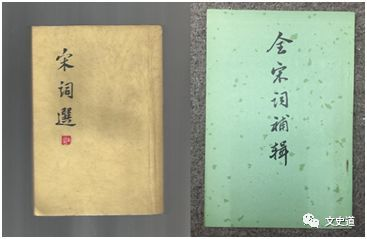 宋词選
全宋词補辑
文史道